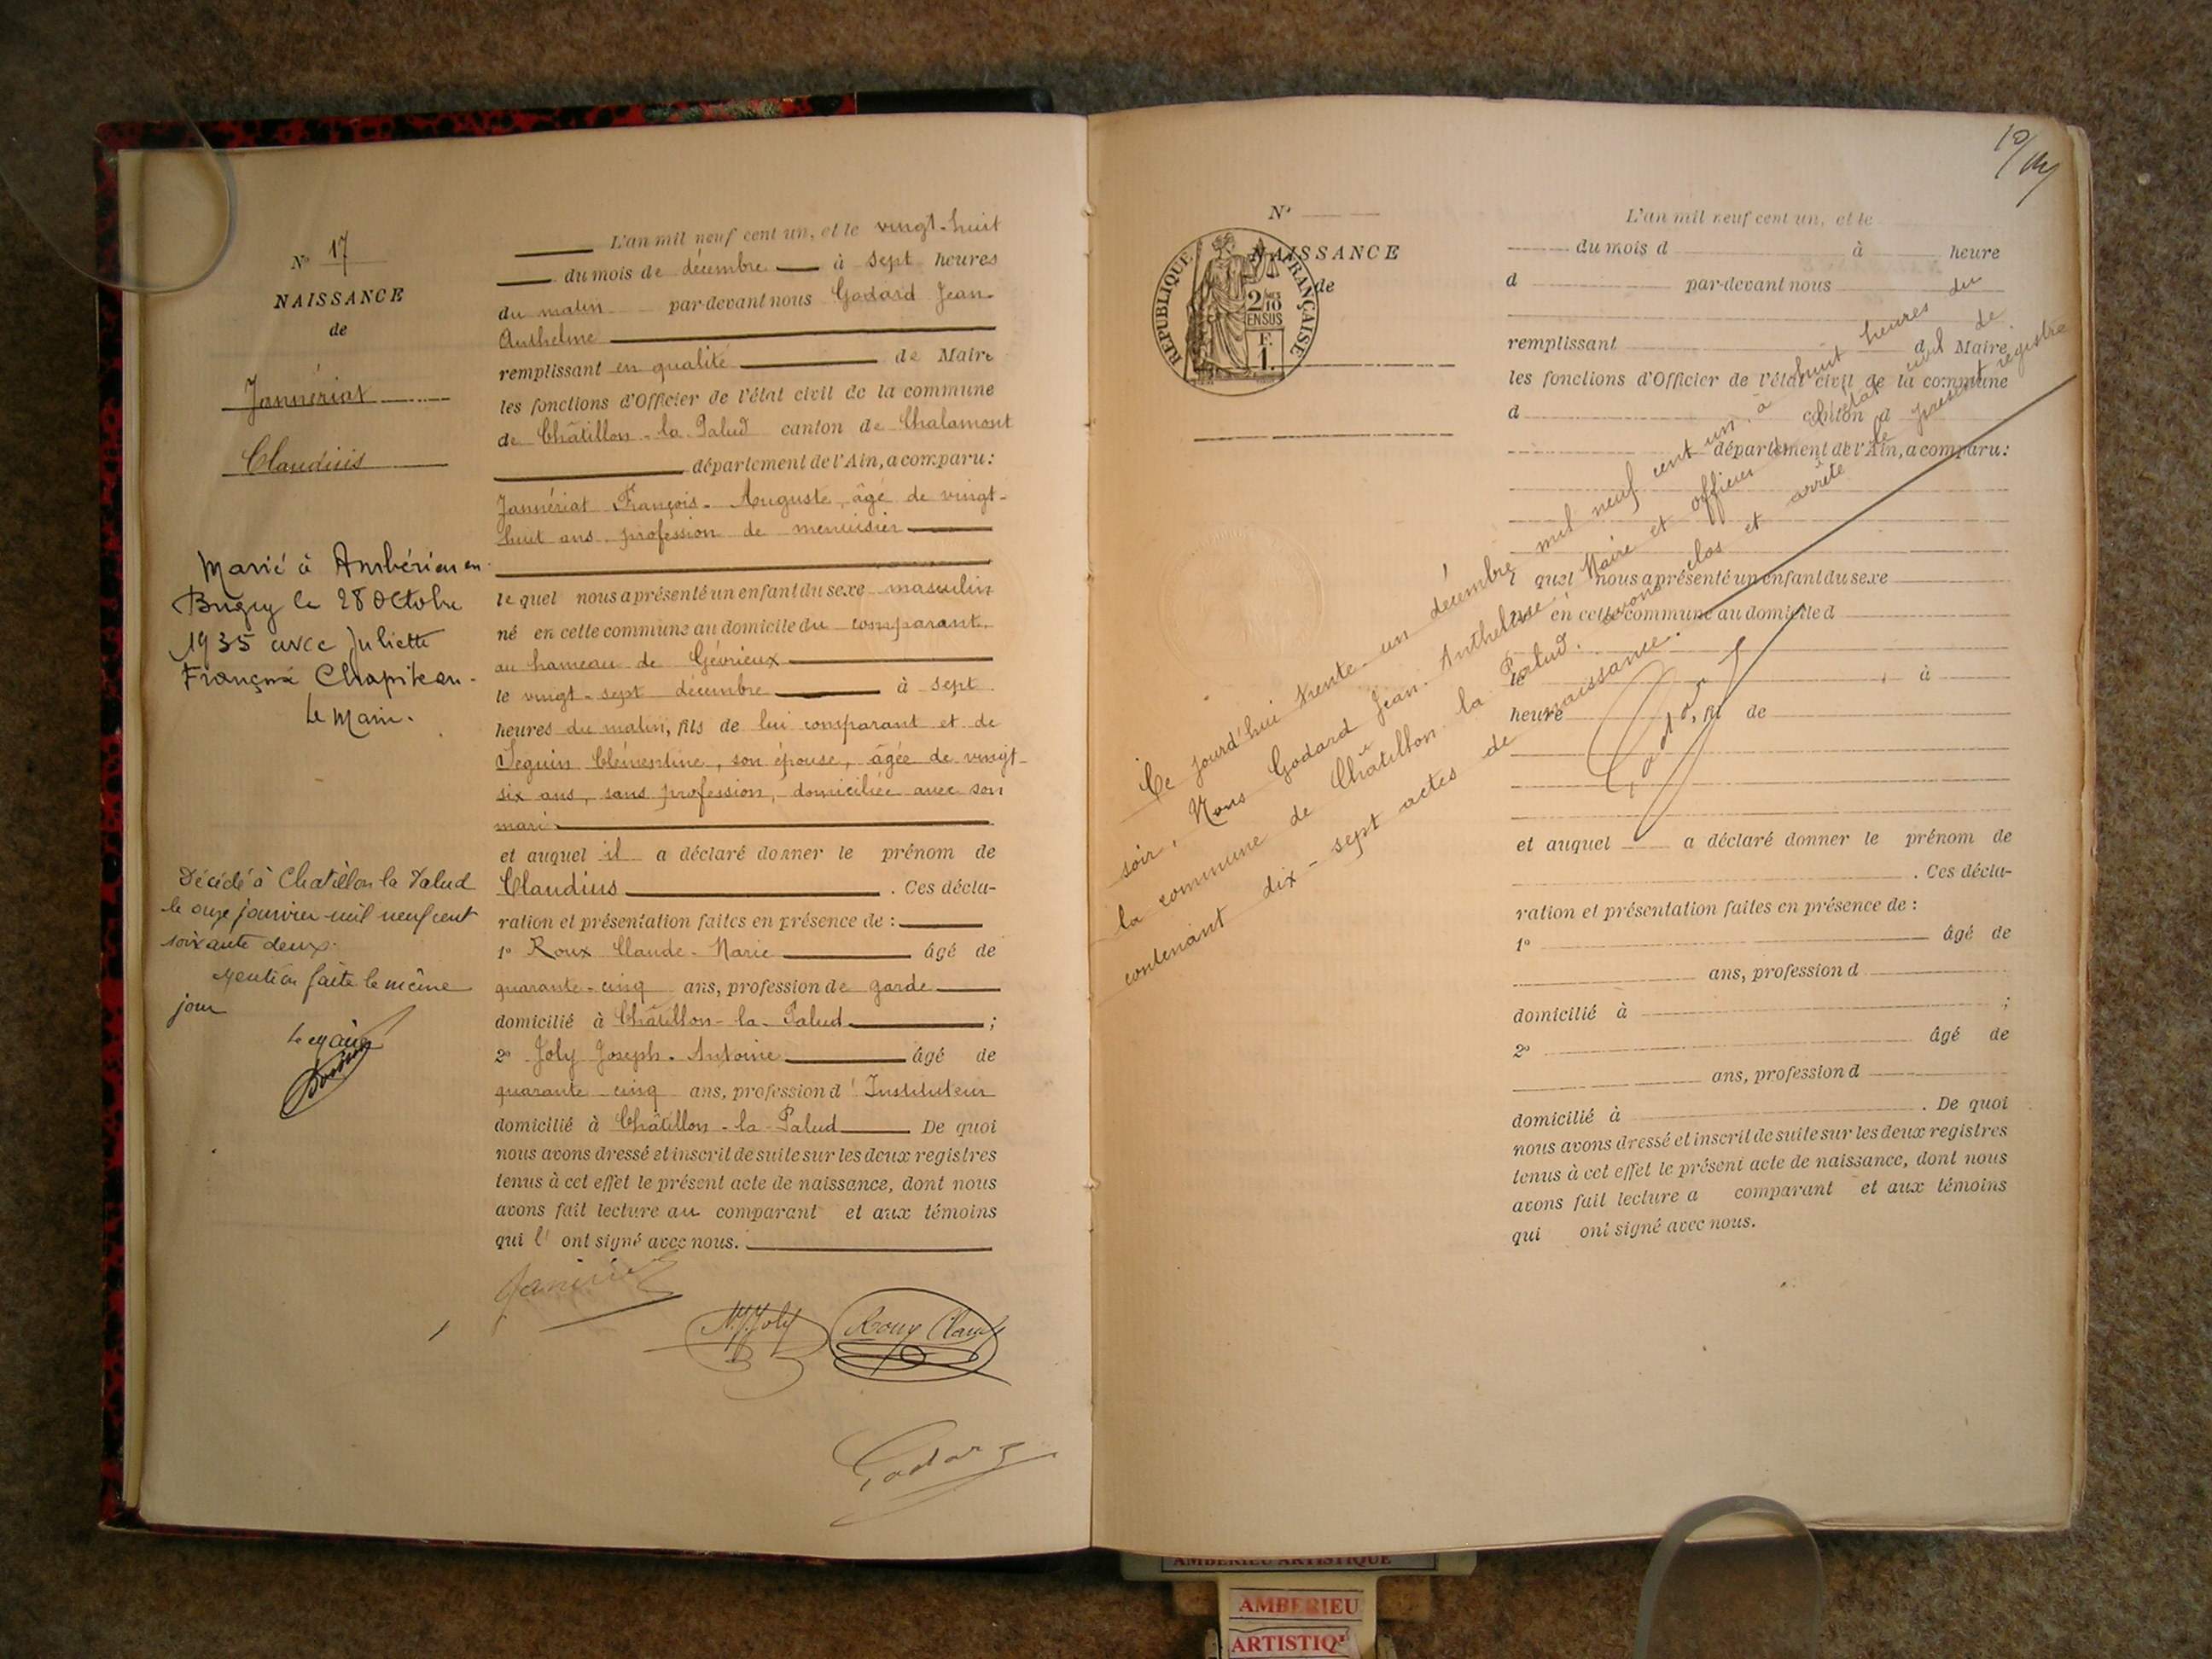 N° 17
NAISSANCE
de
Jannériat
Claudius
Marié à Ambérieu en
Bugey le 28 Octobre
1935 avec Juliette
Françoise Chapiteau.
Le Maire.
Décédé à Chatillon la Palud
le onze janvier mil neuf cent
soixante deux.
Mention faite le même
jour
Le Maire
L'an mil neuf cent un, et le vingt-huit
du mois de décembre à sept heures
du matin par-devant nous Godard Jean
Anthelme
remplissant en qualité de Maire
les fonctions d'Officier de l'état civil de la commune
de Châtillon-la-Palud canton de Chalamont
département de l'Ain, a comparu:
Jannériat François-Auguste, âgé de vingt-
huit ans, profession de menuisier
lequel nous a présenté un enfant du sexe masculin
né en cette commune au domicile du comparant,
au hameau de Gévrieux
le vingt-sept décembre à sept
heures du matin, fils de lui comparant et de
Seguin Clémentine, son épouse, âgée de vingt-
six ans, sans profession, domiciliée avec son
mari
et auquel il a déclaré donner le prénom de
Claudius . Ces décla-
ration et présentation faites en présence de :
1° Roux Claude-Marie âgé de
quarante-cinq ans, profession de garde
domicilié à Châtillon-la-Palud ;
2° Joly Joseph-Antoine âgé de
quarante cinq ans, profession d'Instituteur
domicilié à Châtillon-la-Palud De quoi
nous avons dressé et inscrit de suite sur les deux registres
tenus à cet effet le présent acte de naissance, dont nous
avons fait lecture au comparant et aux témoins
qui l' ont signé avec nous.
Joly Roux Claude
Godard
N°
NAISSANCE
de
RÉPUBLIQUE FRANÇAISE
2/10
EN SUS
F.
1.
L'an mil neuf cent un, et le
du mois d à heure
d par-devant nous
remplissant d Maire
les fonctions d'Officier de l'état civil de la commune
d canton d
département de l'Ain, a comparu:
l quel nous a présenté un enfant du sexe
né en cette commune au domicile d
le , à
heure , fil de
et auquel a déclaré donner le prénom de
. Ces décla-
ration et présentation faites en présence de :
1° âgé de
ans, profession d
domicilié à ;
2° âgé de
ans, profession d
domicilié à . De quoi
nous avons dressé et inscrit de suite sur les deux registres
tenus à cet effet le présent acte de naissance, dont nous
avons fait lecture a comparant et aux témoins
qui ont signé avec nous.
Ce jourd'hui trente-un décembre mil neuf cent un, à huit heures du
soir, Nous Godard Jean-Anthelme, Maire et officier de l'état civil de
la commune de Châtillon-la-Palud, avons clos et arrêté le présent registre
contenant dix-sept actes de naissance.
Godard
10
AMBERIEU ARTISTIQUE
AMBERIEU
ARTISTIQU